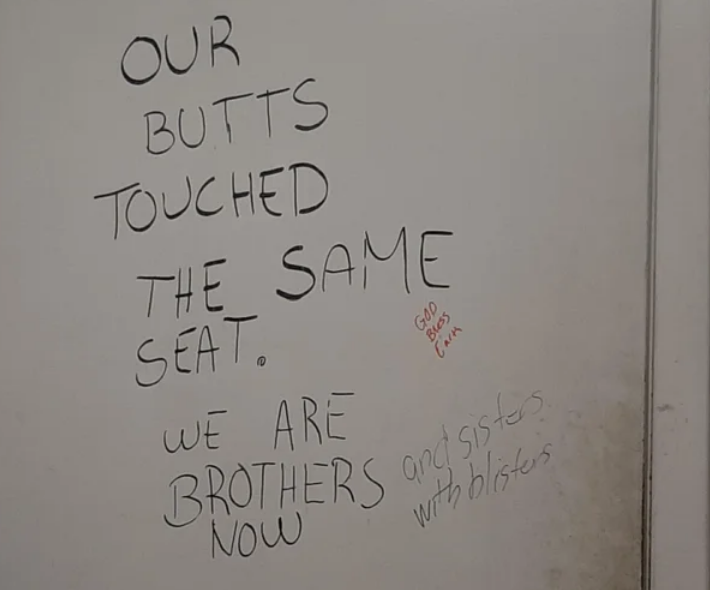 OUR
BUTTS
TOUCHED
THE SAME
SEAT.
WE ARE
BROTHERS
NOW
and sisters
with blisters
GOD
Bless